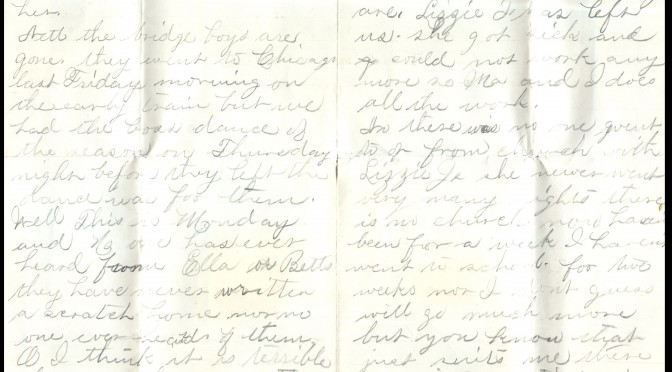 her.
Well the bridge boys are
gone they went to Chicago
last Friday morning on
the early train but we
had the boss dance of
the season on Thursday
night before they left the
dance was for them.
Well This is Monday
and No one has ever
heard from Ella or Betts
they have never written
a scratch home nor no
one ever heard of them.
O, I think it is terrible
are. Lizzie J. has left
us. she got sick and
could not work any
more so Ma and I does
all the work.
there was no one went
to or from church with
Lizzie J. she never went
very many nights there
is no church now hasn
been for a week I haven
went to school for two
weeks nor I dont guess
will go much more
but you know that
just suits me there